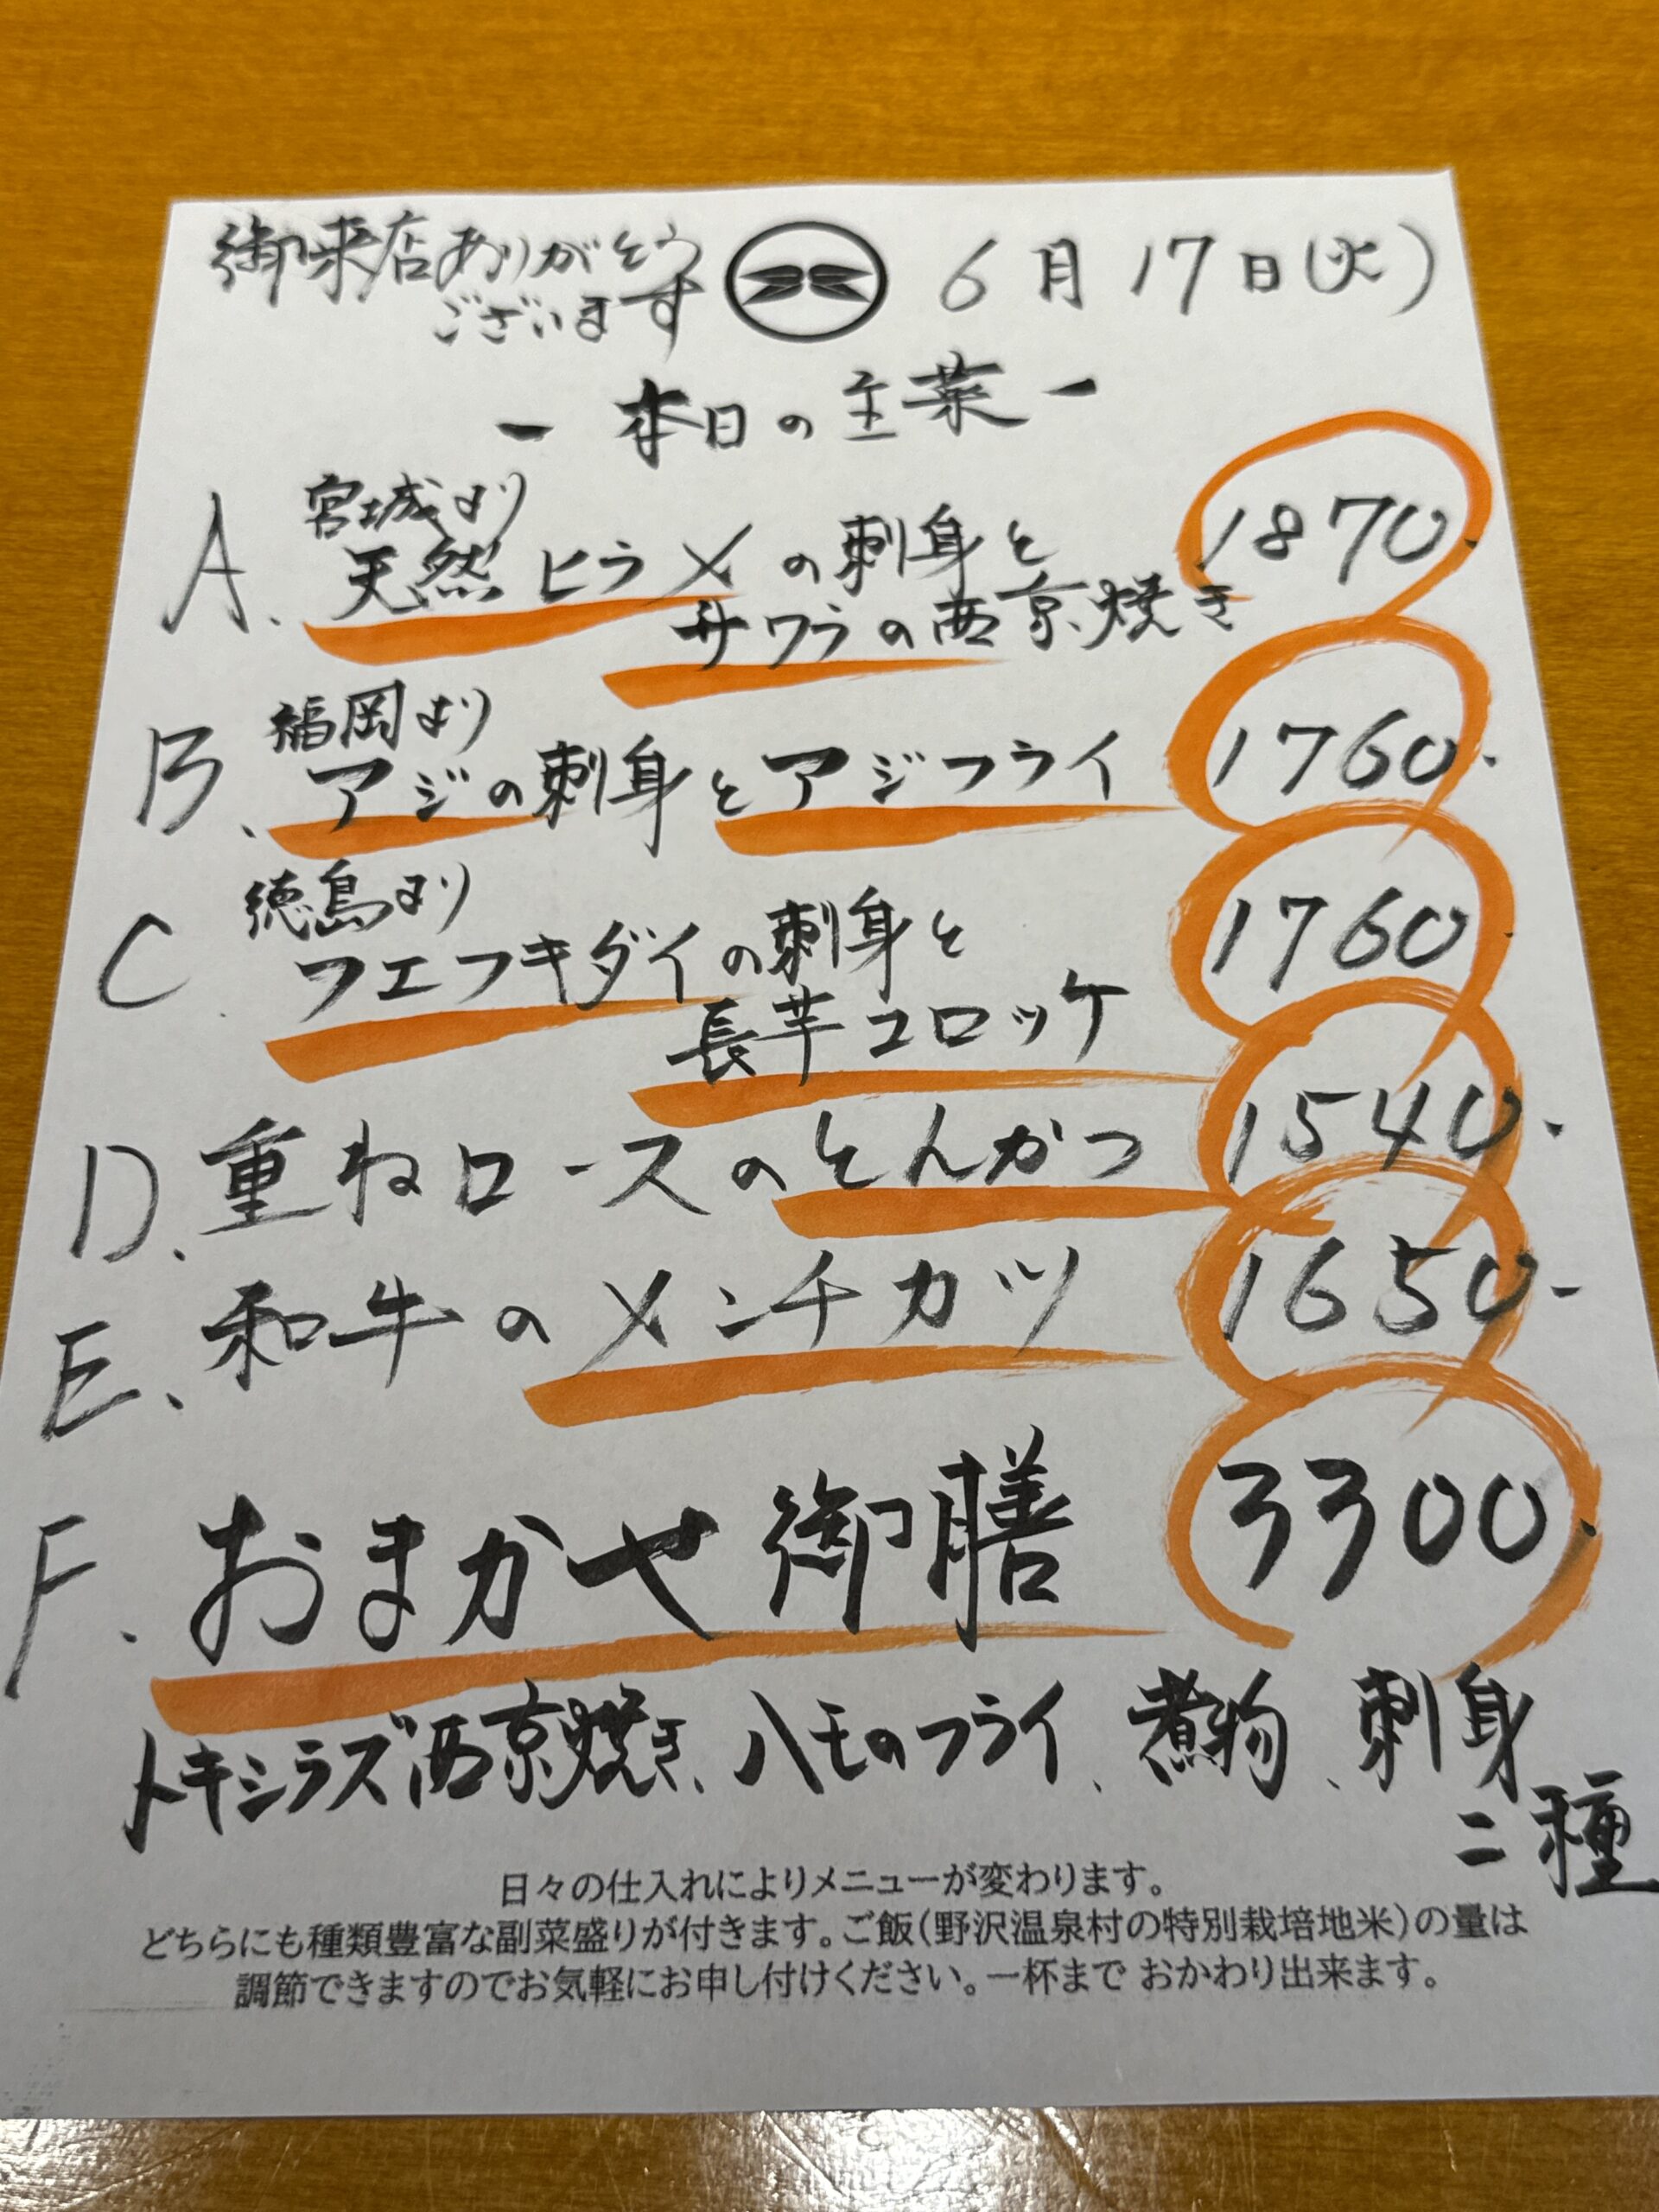 御来店ありがとう
ございます
6月17日(火)
- 本日の主菜 -
A. 宮城より
天然ヒラメの刺身と
サワラの西京焼き
1870.
B. 福岡より
アジの刺身とアジフライ
1760.
C. 徳島より
フエフキダイの刺身と
長芋コロッケ
1760.
D. 重ねロースのとんかつ 1540.
E. 和牛のメンチカツ 1650-
F. おまかせ御膳 3300.
トキシラズ西京焼き、ハモのフライ、煮物、刺身
二種
日々の仕入れによりメニューが変わります。
どちらにも種類豊富な副菜盛りが付きます。ご飯(野沢温泉村の特別栽培地米)の量は
調節できますのでお気軽にお申し付けください。一杯まで おかわり出来ます。